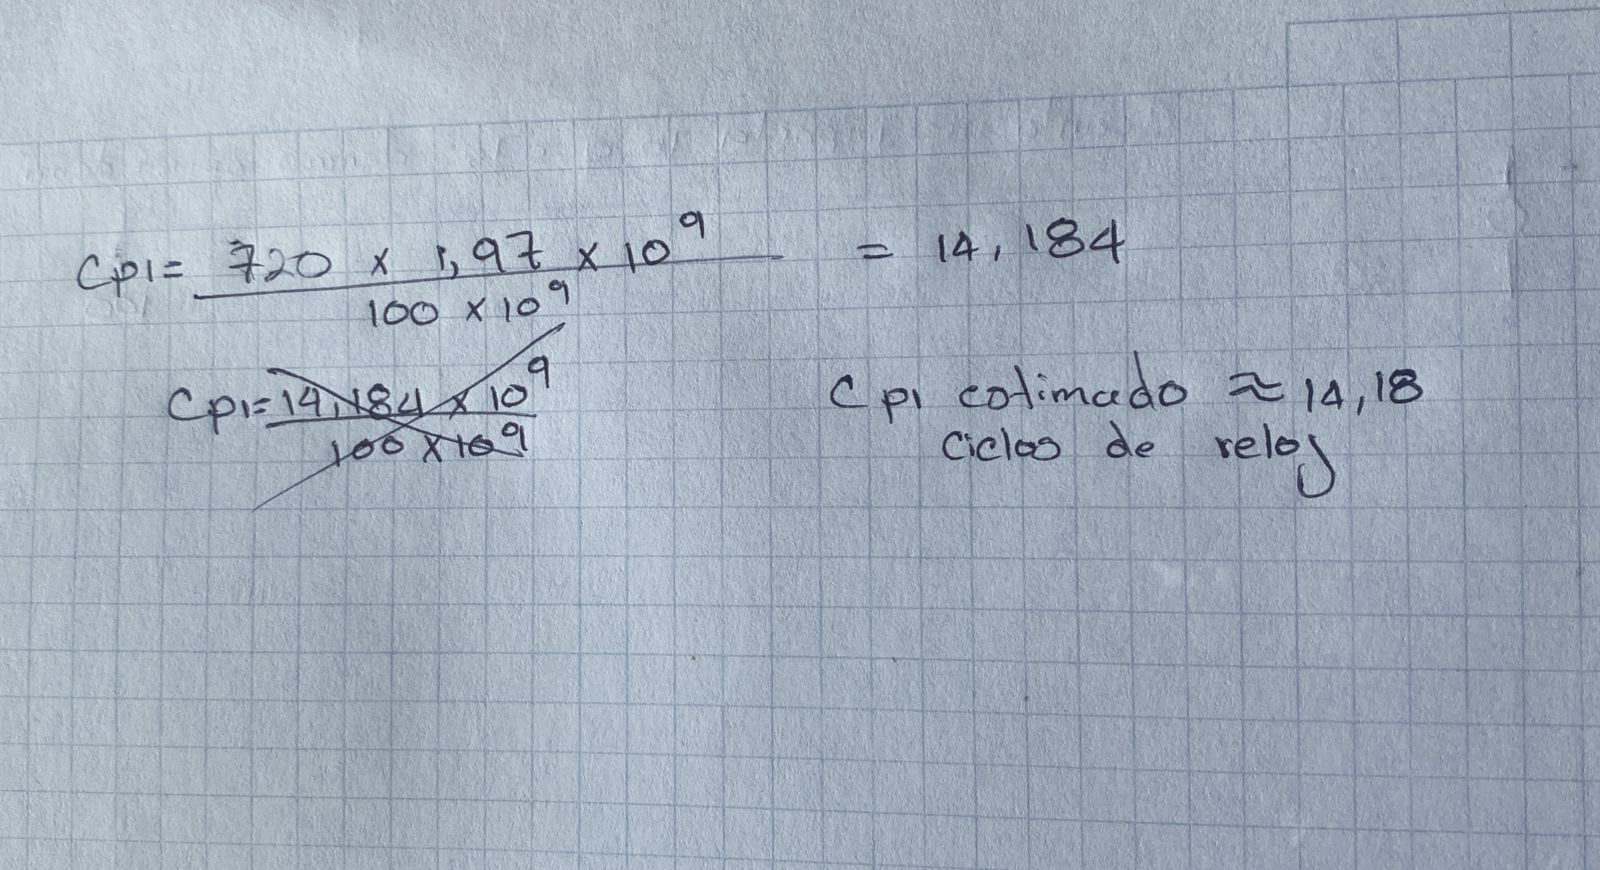 Cpi= 720 x 1,97 x 10⁹ = 14,184
100 x 10⁹
Cpi= 14,184 x 10⁹
100 x 10⁹
Cpi cotimado ≈ 14,18
ciclos de reloj